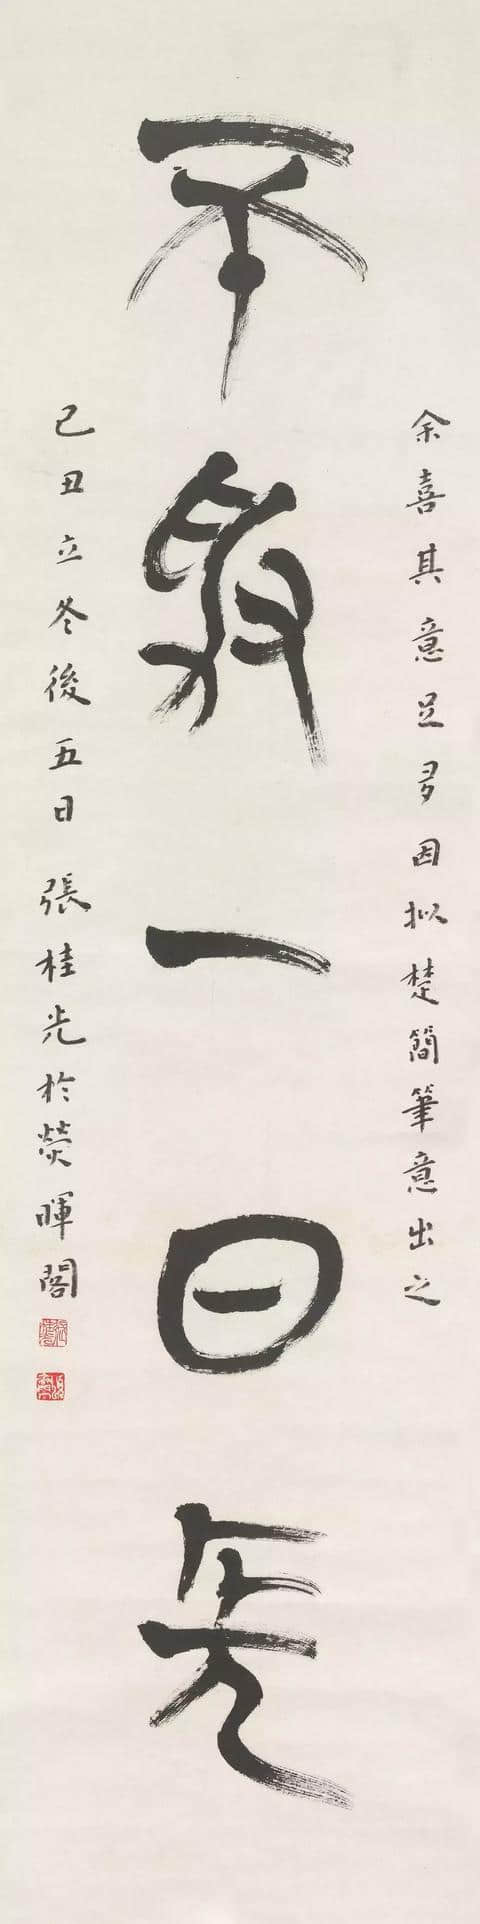 不敢一日
余喜其意足多因拟楚簡筆意出之
己丑立冬後五日張桂光於熒暉閣